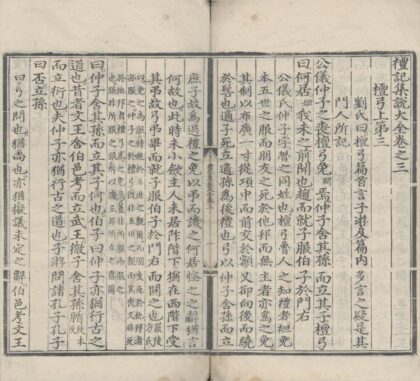 禮記集說大全卷之三
檀弓上第三
劉氏曰檀弓篇首言子游及篇內多言之疑是其
門人所記
公儀仲子之喪檀弓免焉仲子舍其孫而立其子檀弓
曰何居我未之前聞也趨而就子服伯子於門右
公儀氏仲子字魯之同姓也檀弓魯人之知禮者袒免
本五世之服而朋友之死於他邦而無主者亦為之免
其制以布廣一寸從項中而前交於額又卻向後而繞
於髻也適子死立適孫為後禮也弓以仲子舍孫而立
庶子故為過禮之免以弔而譏之何居怪之之辭猶言
何故也此時未小斂主人未居阼階下猶在西階下受
其弔故弓弔畢而就子服伯子於門右而問之也
曰仲子舍其孫而立其子何也伯子曰仲子亦猶行古之
道也昔者文王舍伯邑考而立武王微子舍其孫腯
而立衍也夫仲子亦猶行古之道也子游問諸孔子孔子
曰否立孫
曰弓之問也猶尚也亦猶擬議未定之辭伯邑考文王